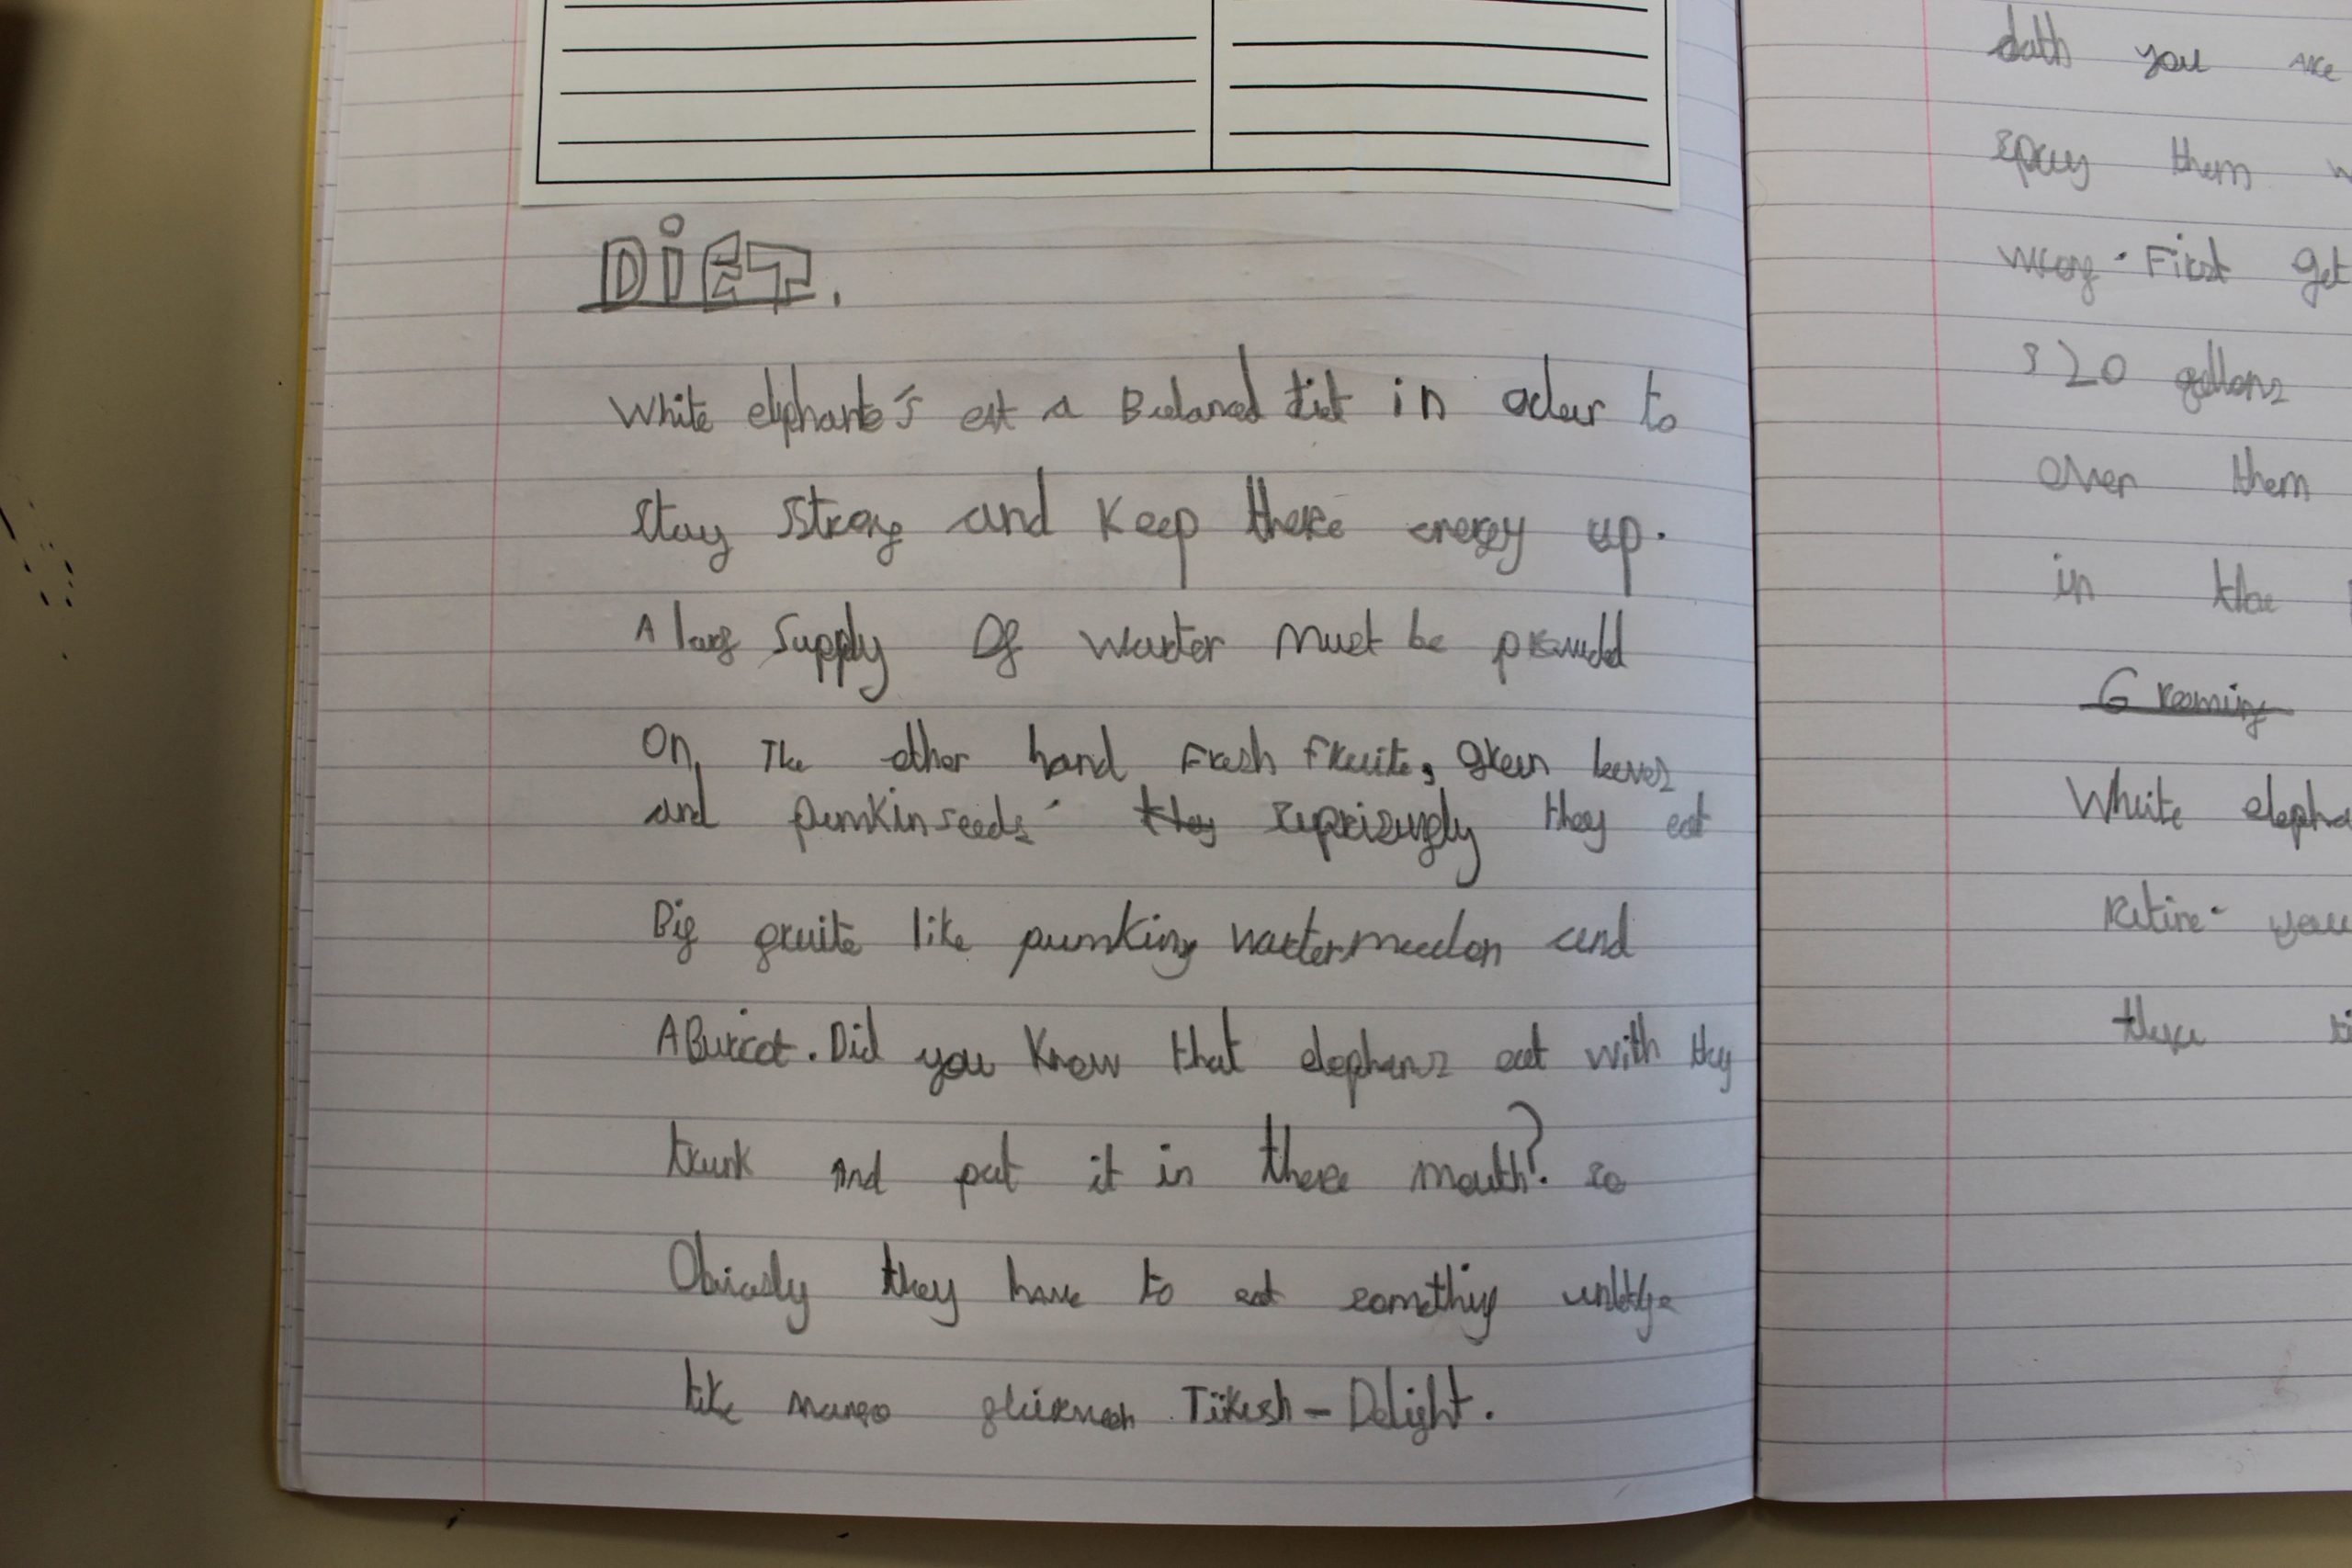 DiET.
White elphante's eat a Balanced diet in odear to
stay strong and Keep there energy up.
A larg Supply Of Warter Must be provudd
On, The other hand Fresh Fruite, green leeves
and pumkin seeds. they suprisingly they eat
Big gruite like pumking wartermealon and
ABuricot. Did you Know that elephans eat with they
trunk And put it in there mouth? so
Obviously they have to eat somethig
like mango Tükish - Delight.
dath you are
spray them w
wrong. First get
320 gallons
over them
in the
Greaming
White elepha
Retire. you
there